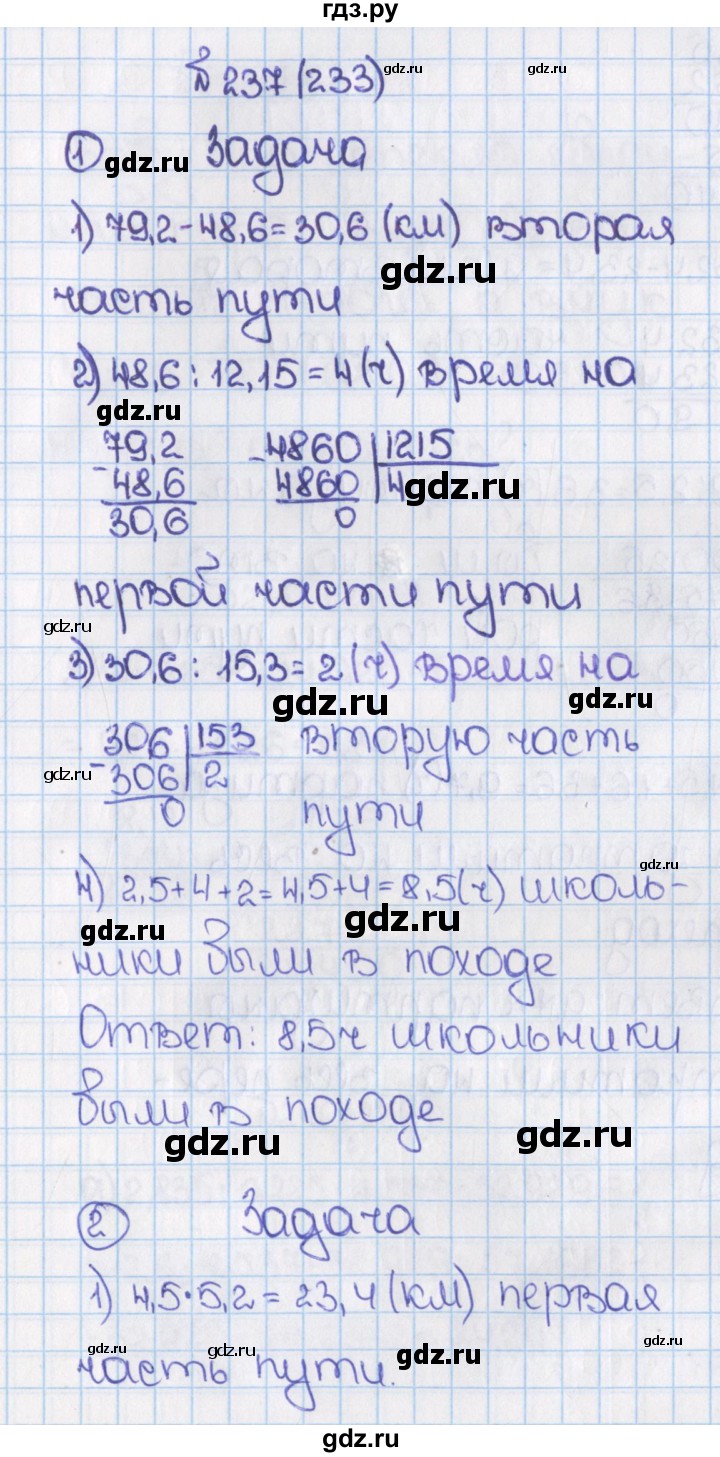 гдз.ру
№ 237 (233)
gdz.ru
gdz.ru
① Задача
gdz.ru
1) 79,2 - 48,6 = 30,6 (км) вторая
gdz.ru
часть пути
2) 48,6 : 12,15 = 4 (ч) время на
gdz.ru
79,2 - 4860 | 1215
- 48,6 4860 | 4
gdz.ru
30,6 0
первой части пути
gdz.ru
3) 30,6 : 15,3 = 2 (ч) время на
gdz.ru
gdz.ru
306 | 153 вторую часть
gdz.ru
- 306 | 2
0 пути
gdz.ru
4) 2,5 + 4 + 2 = 4,5 + 4 = 8,5 (ч) школь-
gdz.ru
gdz.ru
ники были в походе
Ответ: 8,5 ч школьники
были в походе
gdz.ru
gdz.ru
② Задача
1) 4,5 · 5,2 = 23,4 (км) первая
gdz.ru
gdz.ru
gdz.ru
gdz.ru
часть пути.
gdz.ru